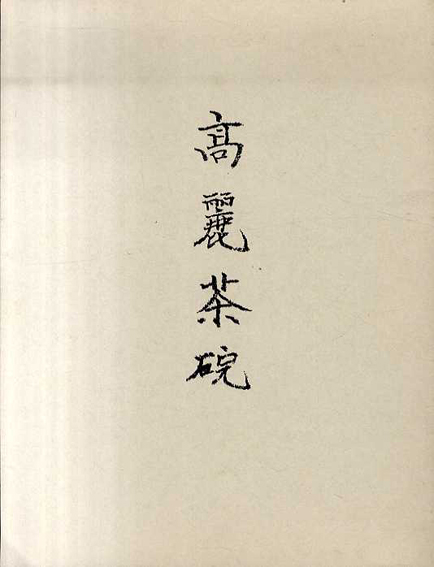 高麗茶碗